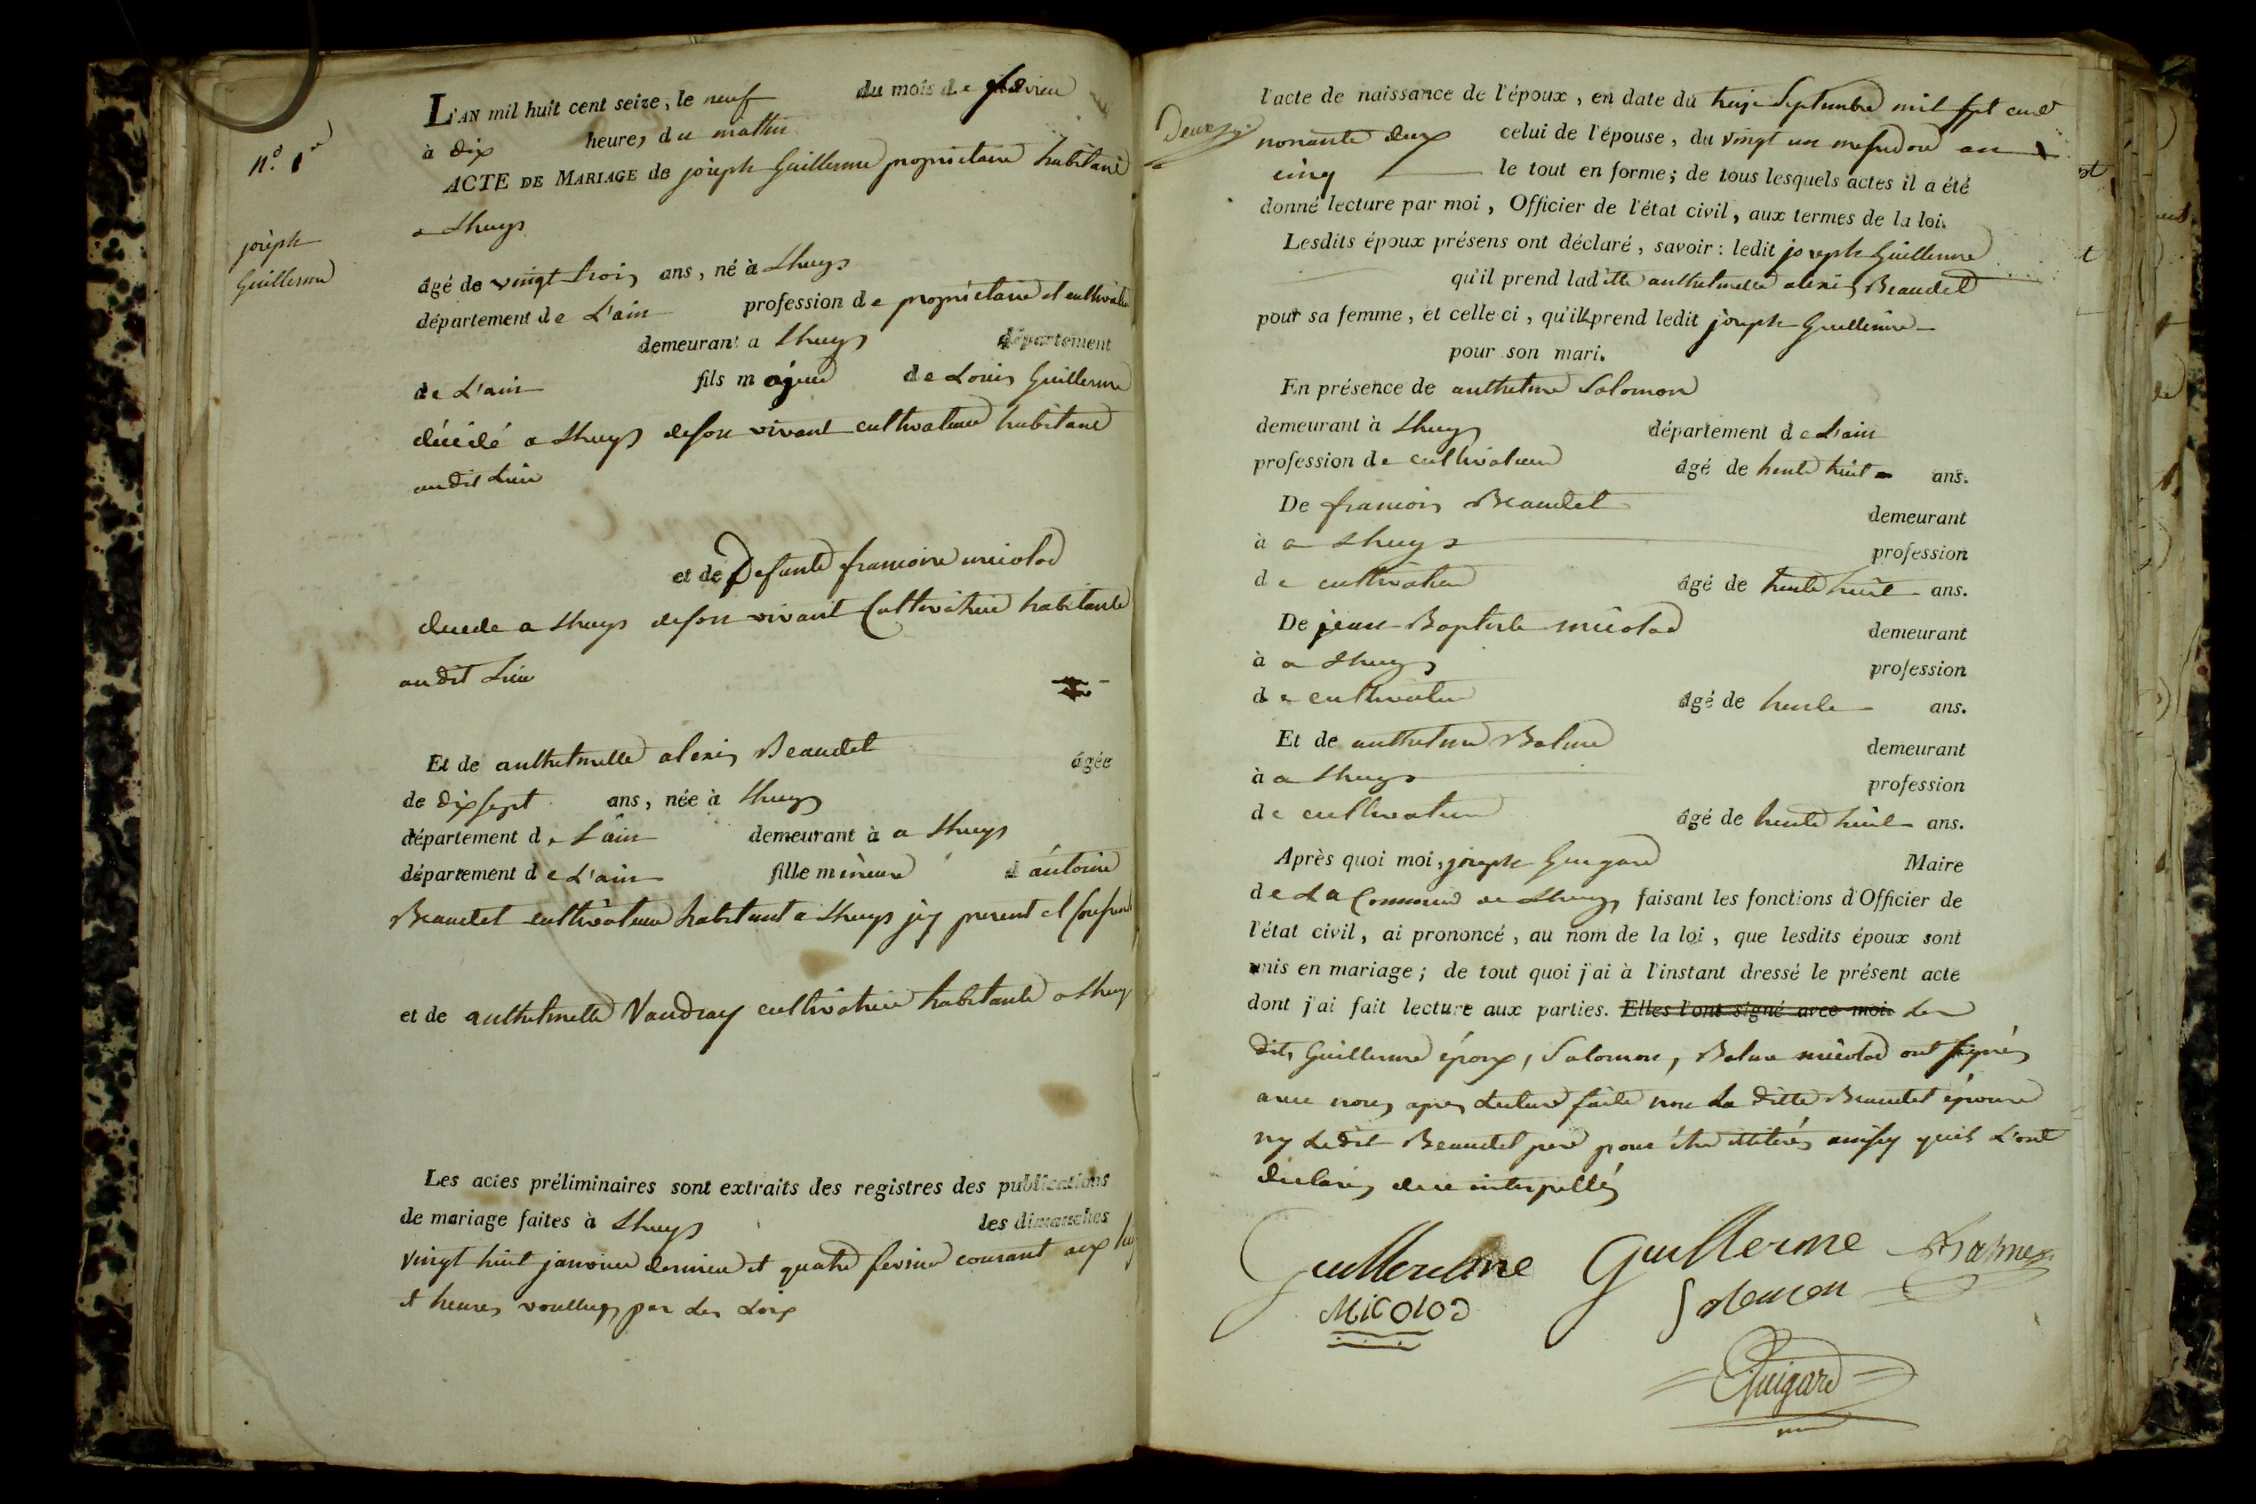 L'AN mil huit cent seize, le neuf du mois de fevrier
à dix heures du mattin
N.º 1er
ACTE DE MARIAGE de joseph Guillerme proprietaire habitant
a Lhuys
joseph
Guillerme
âgé de vingt trois ans, né à Lhuys
département de L'ain profession de proprietaire et cultivateur
demeurant a Lhuys département
de L'ain fils majeur de Louis Guillerme
décédé a Lhuys deson vivant cultivateur habitant
audit Lieu
et de Defunte francoise micolod
decede a Lhuys deson vivant Cultivatrice habitante
audit Lieu
Et de anthelmette alexis Beaudet âgée
de dix sept ans, née à Lhuys
département de L'ain demeurant à a Lhuys
département de L'ain fille mineure d'antoine
Beaudet cultivateur habitant a Lhuys jcy present et
et de anthelmette Vaudray cultivatrice habitante a Lhuys
Les actes préliminaires sont extraits des registres des publications
de mariage faites à Lhuys les dimanches
vingt huit janvier dernier et quatre fevrier courant aux
et heures voullues par Les Loix
l'acte de naissance de l'époux, en date du treize Septembre mil sept cent
Deux
nonante deux celui de l'épouse, du vingt un messidor an
cinq le tout en forme; de tous lesquels actes il a été
donné lecture par moi, Officier de l'état civil, aux termes de la loi.
Lesdits époux présens ont déclaré, savoir: ledit joseph Guillerme
qu'il prend laditte anthelmette alexis Beaudet
pour sa femme, et celle ci, qu'ill prend ledit joseph Guillerme
pour son mari.
En présence de anthelme Salomon
demeurant à Lhuys département de L'ain
profession de cultivateur âgé de trente huit ans.
De francois Beaudet demeurant
à a Lhuys profession
de cultivateur âgé de trente huit ans.
De jean Baptiste micolod demeurant
à a Lhuys profession
de cultivateur âgé de trente ans.
Et de anthelme Balme demeurant
à a Lhuys profession
de cultivateur âgé de trente huit ans.
Après quoi moi, joseph Guigard Maire
de La Commune de Lhuys faisant les fonctions d'Officier de
l'état civil, ai prononcé, au nom de la loi, que lesdits époux sont
unis en mariage; de tout quoi j'ai à l'instant dressé le présent acte
dont j'ai fait lecture aux parties. Elles l'ont signé avec moi. Les
dits Guillerme époux, Salomon, Balme micolod ont signés
avec nous apres Lecture faite non La ditte Beaudet épouse
ny Ledit Beaudet pere pour être illiterés ainsy quils L'ont
declarés de ce interpellés
Guillerme Guillerme Balme
Micolod Solomon
Guigard